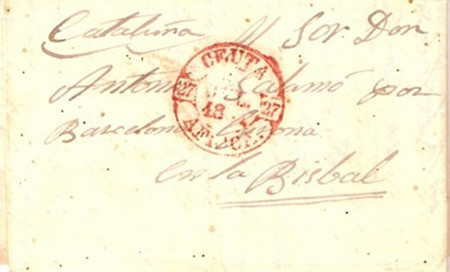 Cataluña Al Sor Don
Antonio Salamó por
Barcelona Gerona
en la Bisbal
CEUTA
27 27
AFRICA